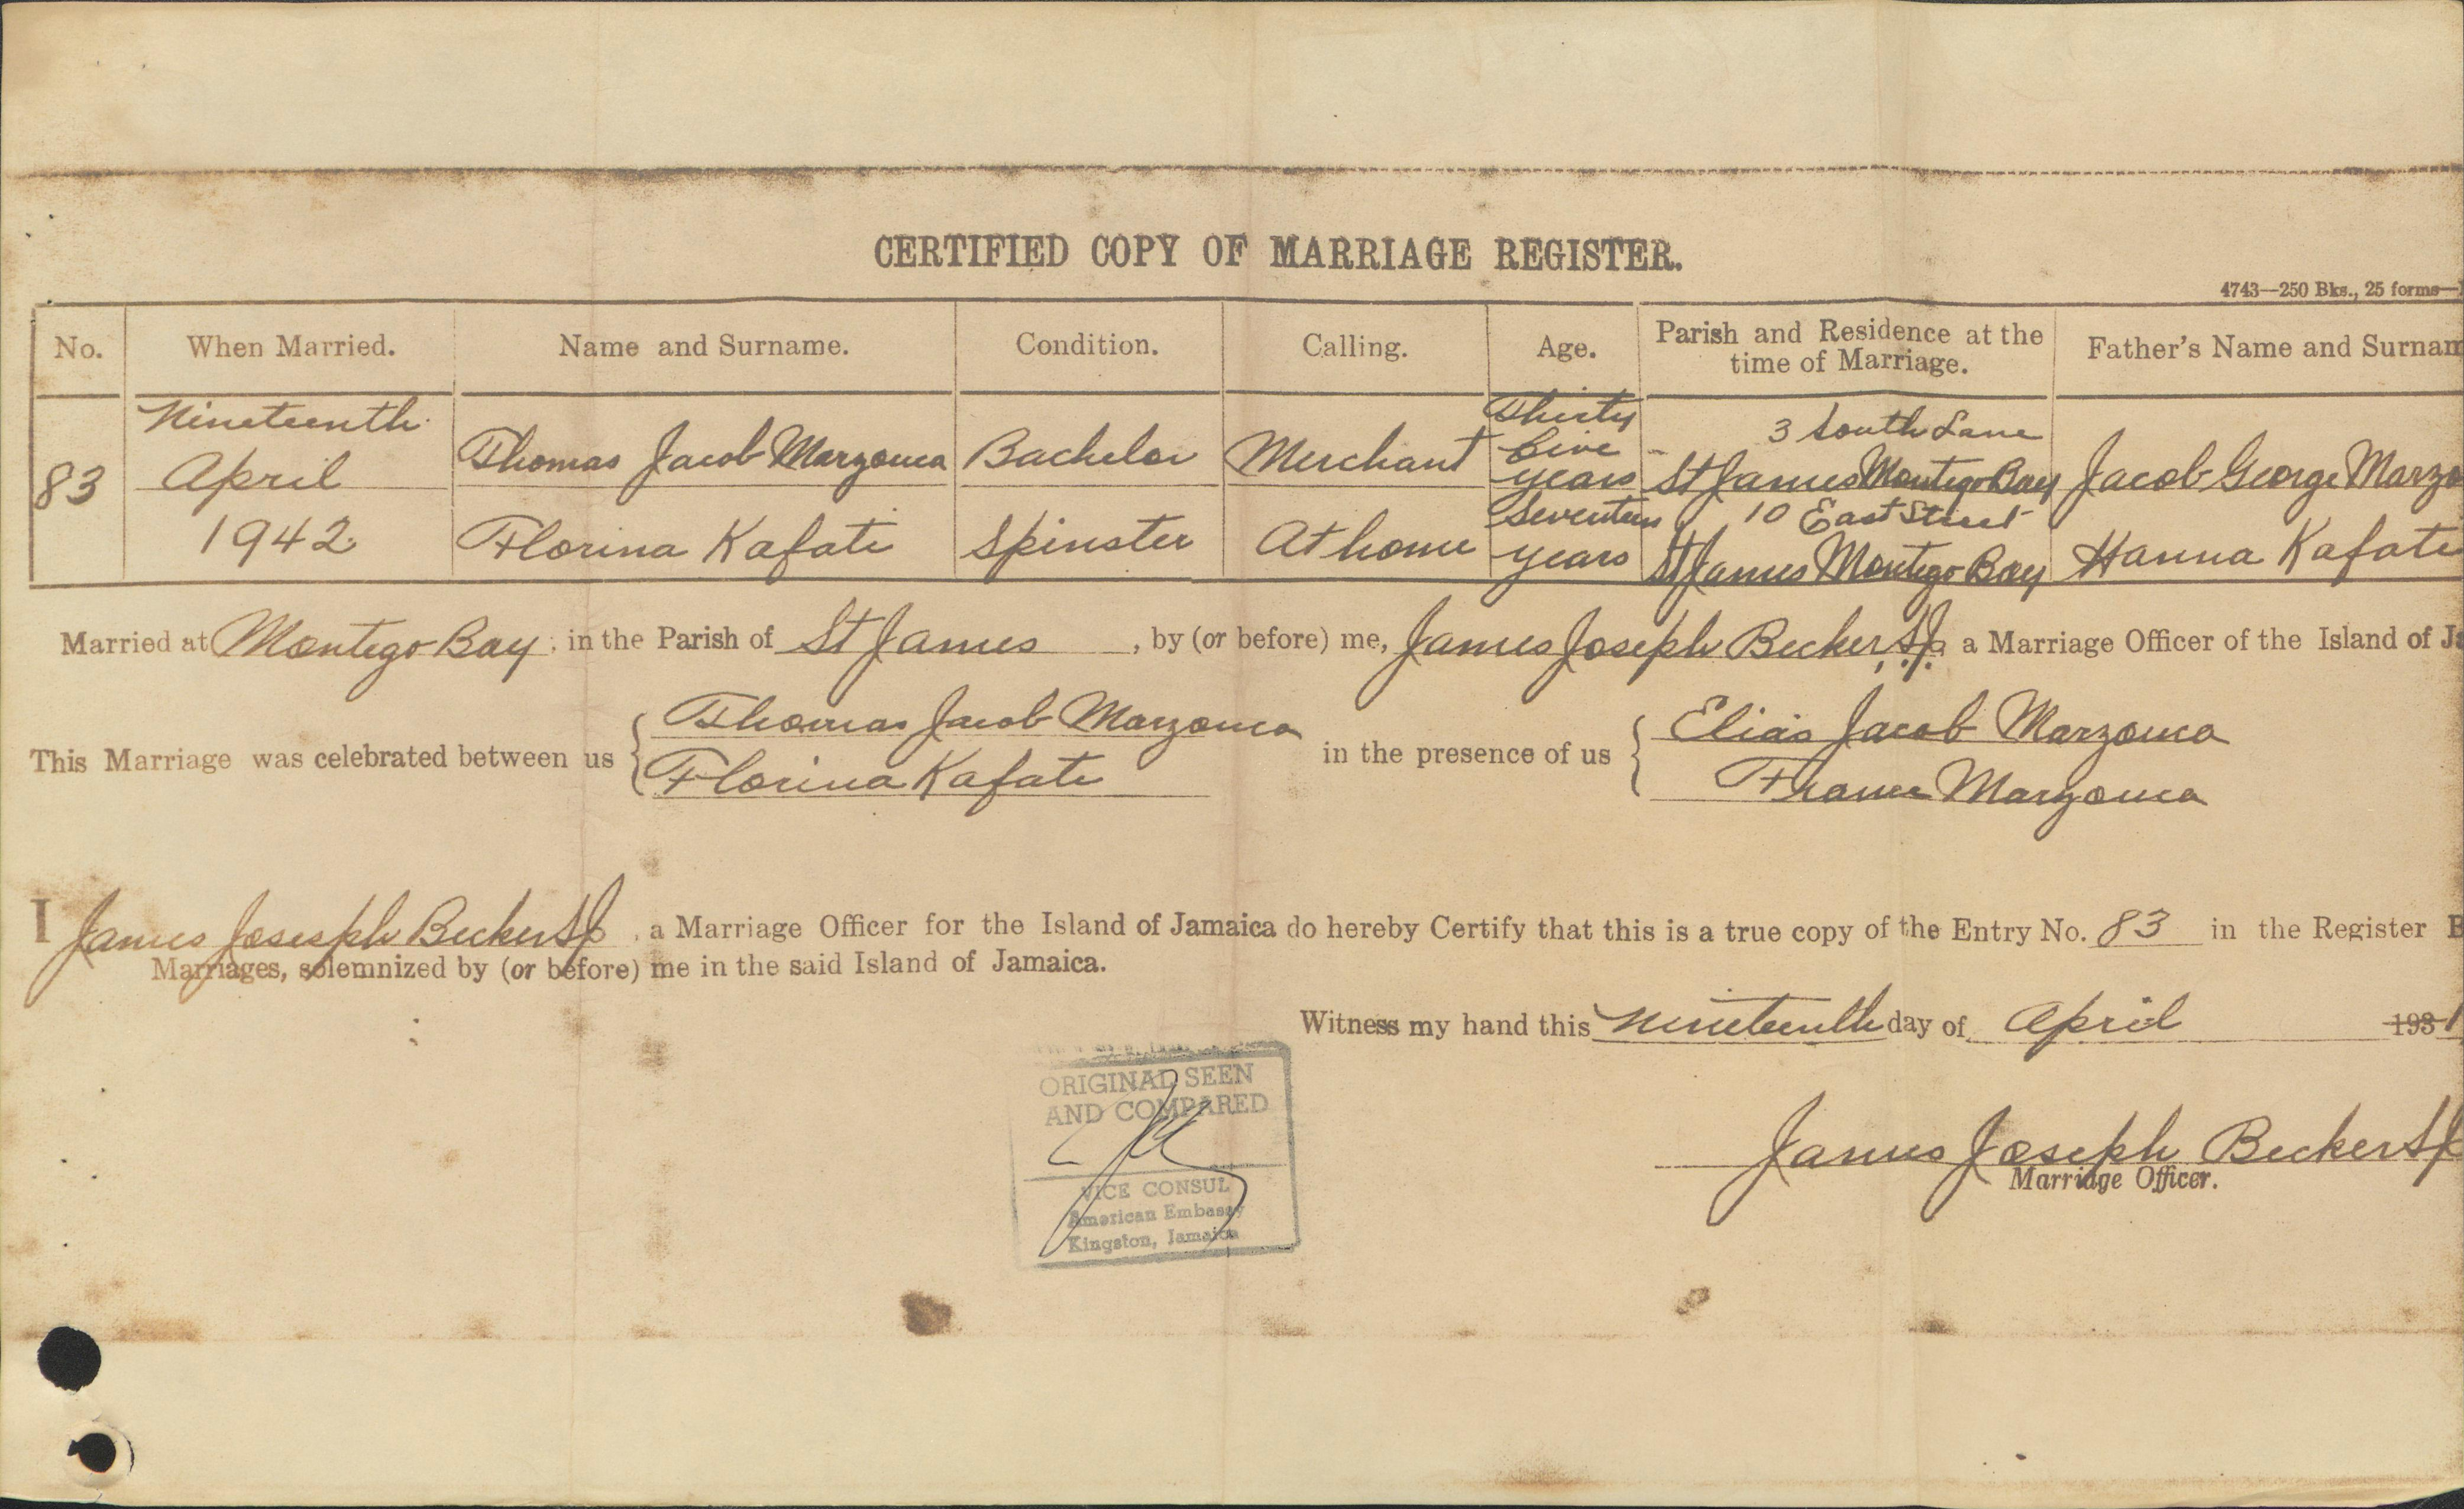 CERTIFIED COPY OF MARRIAGE REGISTER.
4743—250 Bks., 25 forms—
No. When Married. Name and Surname. Condition. Calling. Age. Parish and Residence at the time of Marriage. Father's Name and Surnam
83 Nineteenth April 1942
Thomas Jacob Marzouca Bachelor Merchant Thirty five years 3 South Lane St James Montego Bay Jacob George Marzo
Florina Kafati Spinster At home Seventeen years 10 East Street St James Montego Bay Hanna Kafati
Married at Montego Bay, in the Parish of St James, by (or before) me, James Joseph Becker, S.J. a Marriage Officer of the Island of Ja
This Marriage was celebrated between us { Thomas Jacob Marzouca in the presence of us { Elias Jacob Marzouca
Florina Kafati Marzouca
I James Joseph Becker SJ, a Marriage Officer for the Island of Jamaica do hereby Certify that this is a true copy of the Entry No. 83 in the Register B
Marriages, solemnized by (or before) me in the said Island of Jamaica.
Witness my hand this nineteenth day of April 193 1
ORIGINAL SEEN
AND COMPARED
VICE CONSUL
American Embassy
Kingston, Jamaica
James Joseph Becker SJ
Marriage Officer.